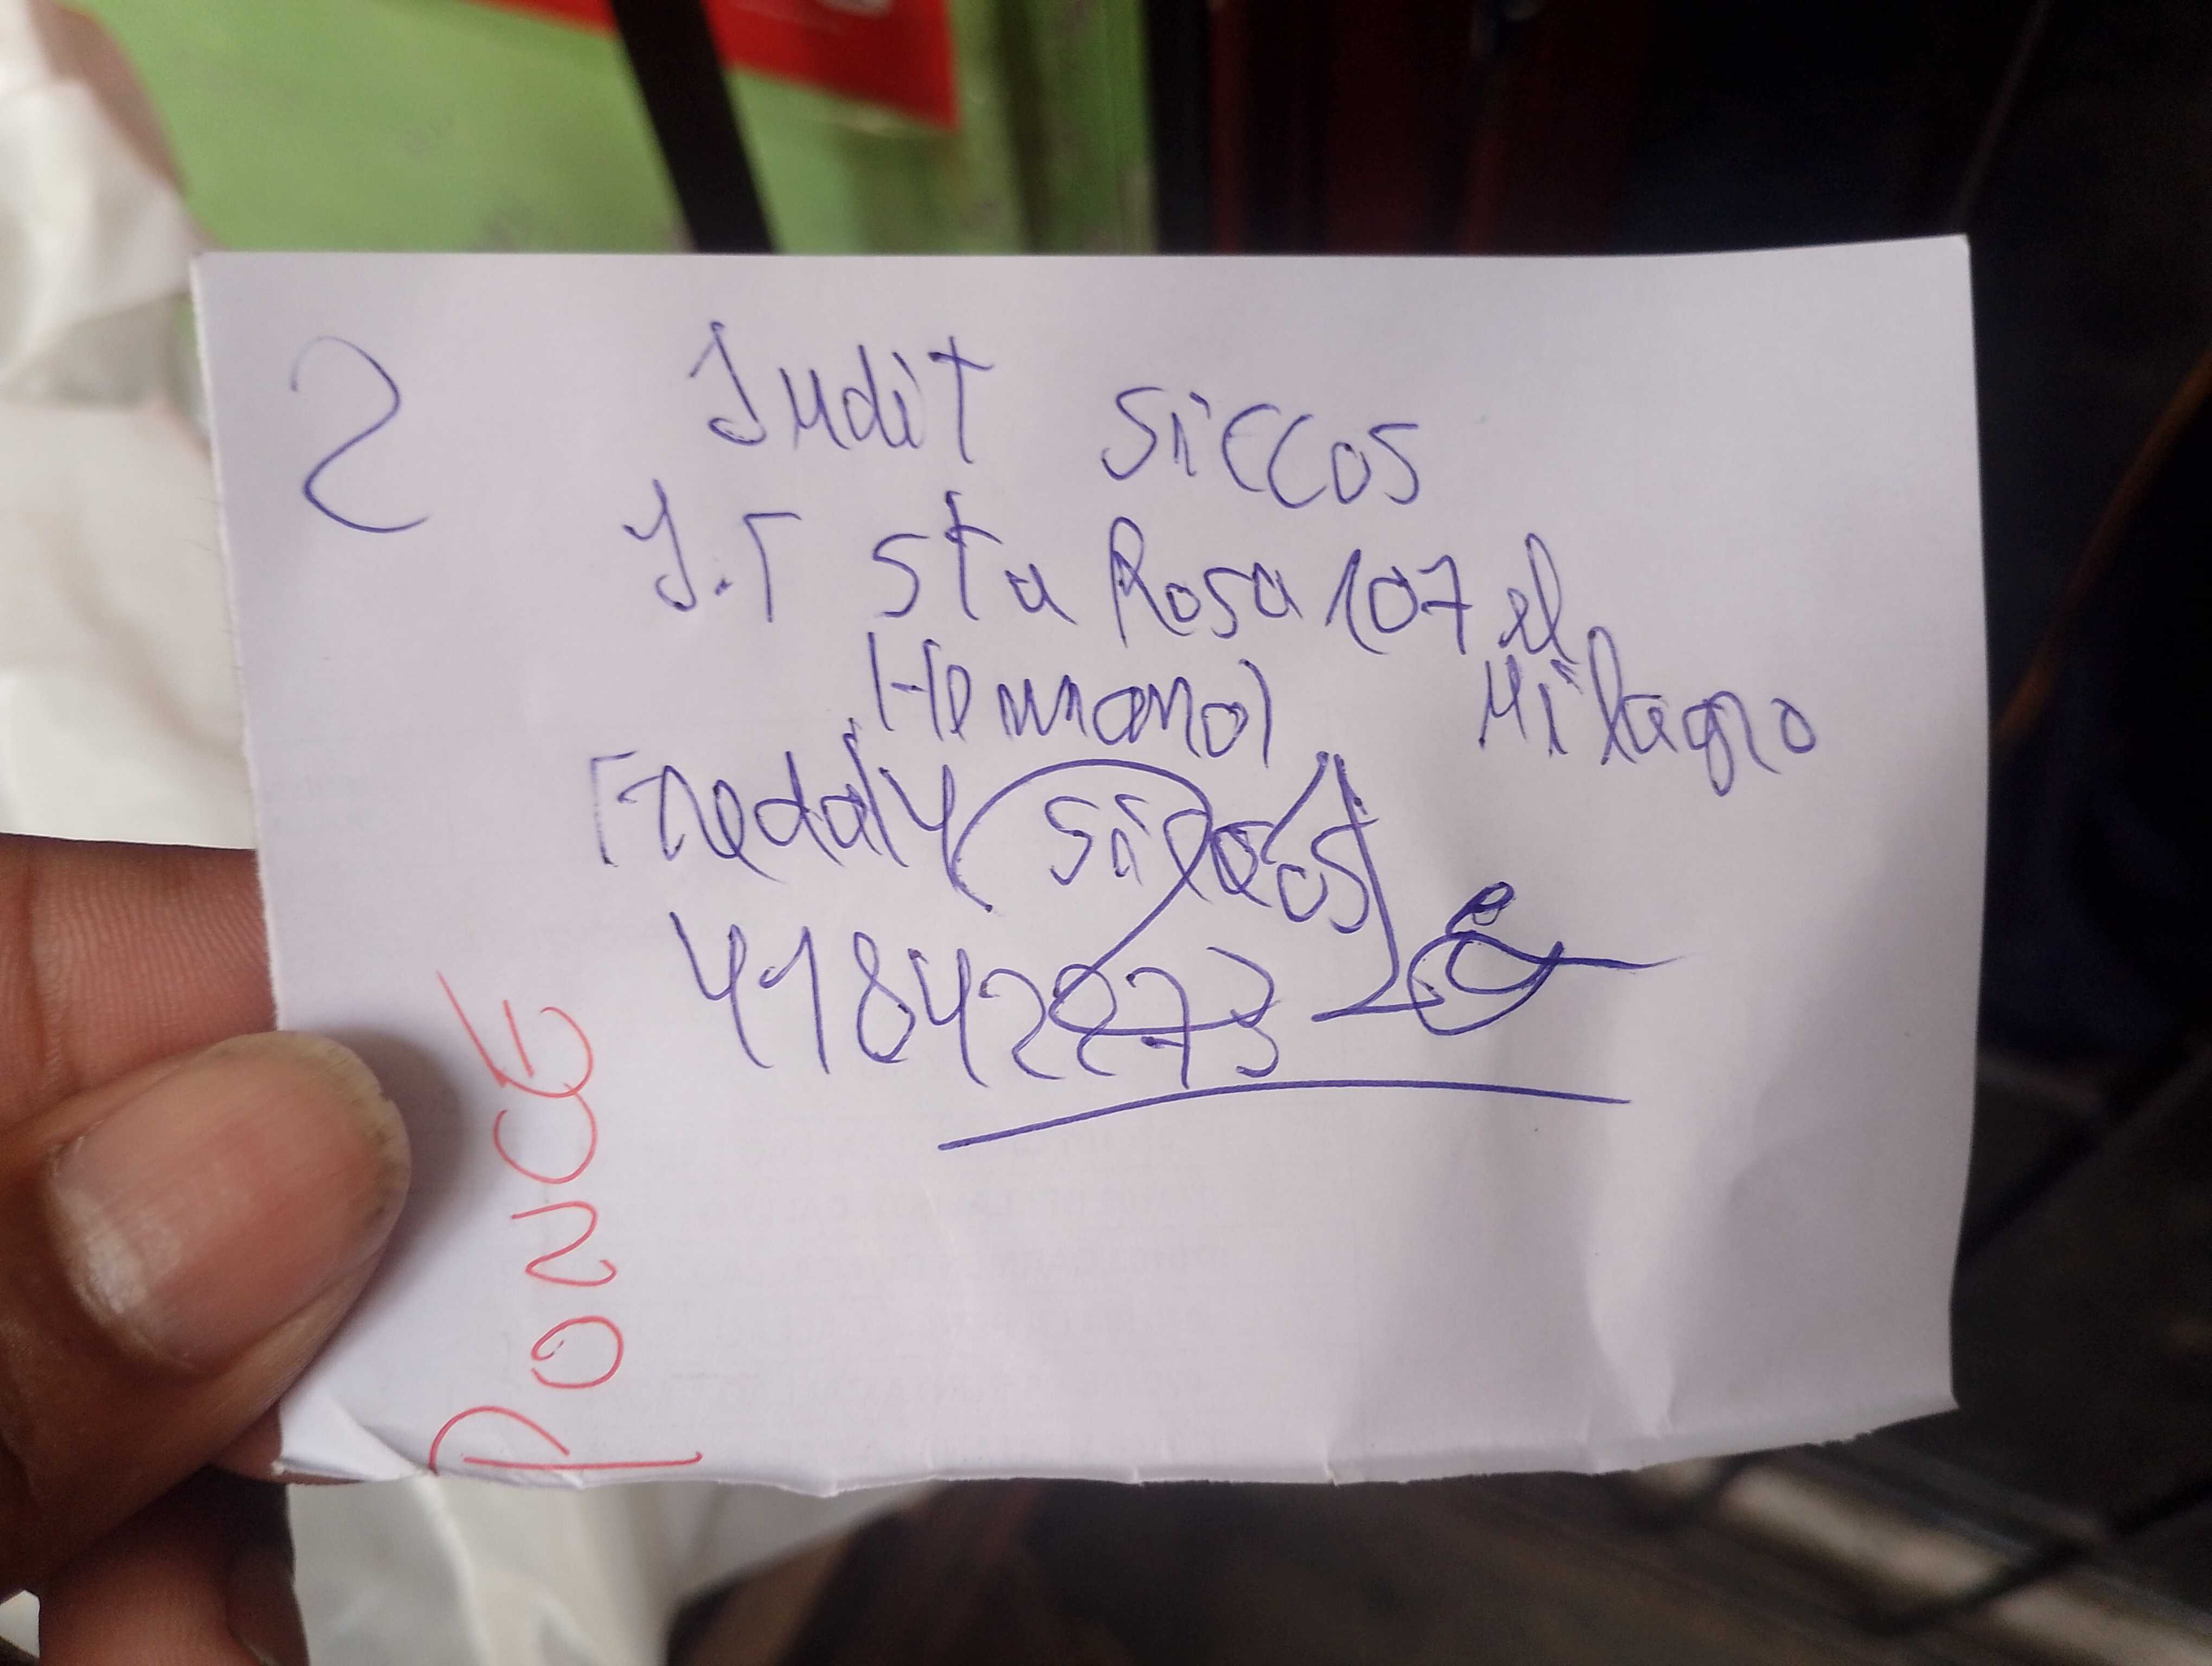 2
Judit Siccos
J.T Sta Rosa 107 el
Milagro
Hermana
Fredaly Siccos
41842273
PONCE